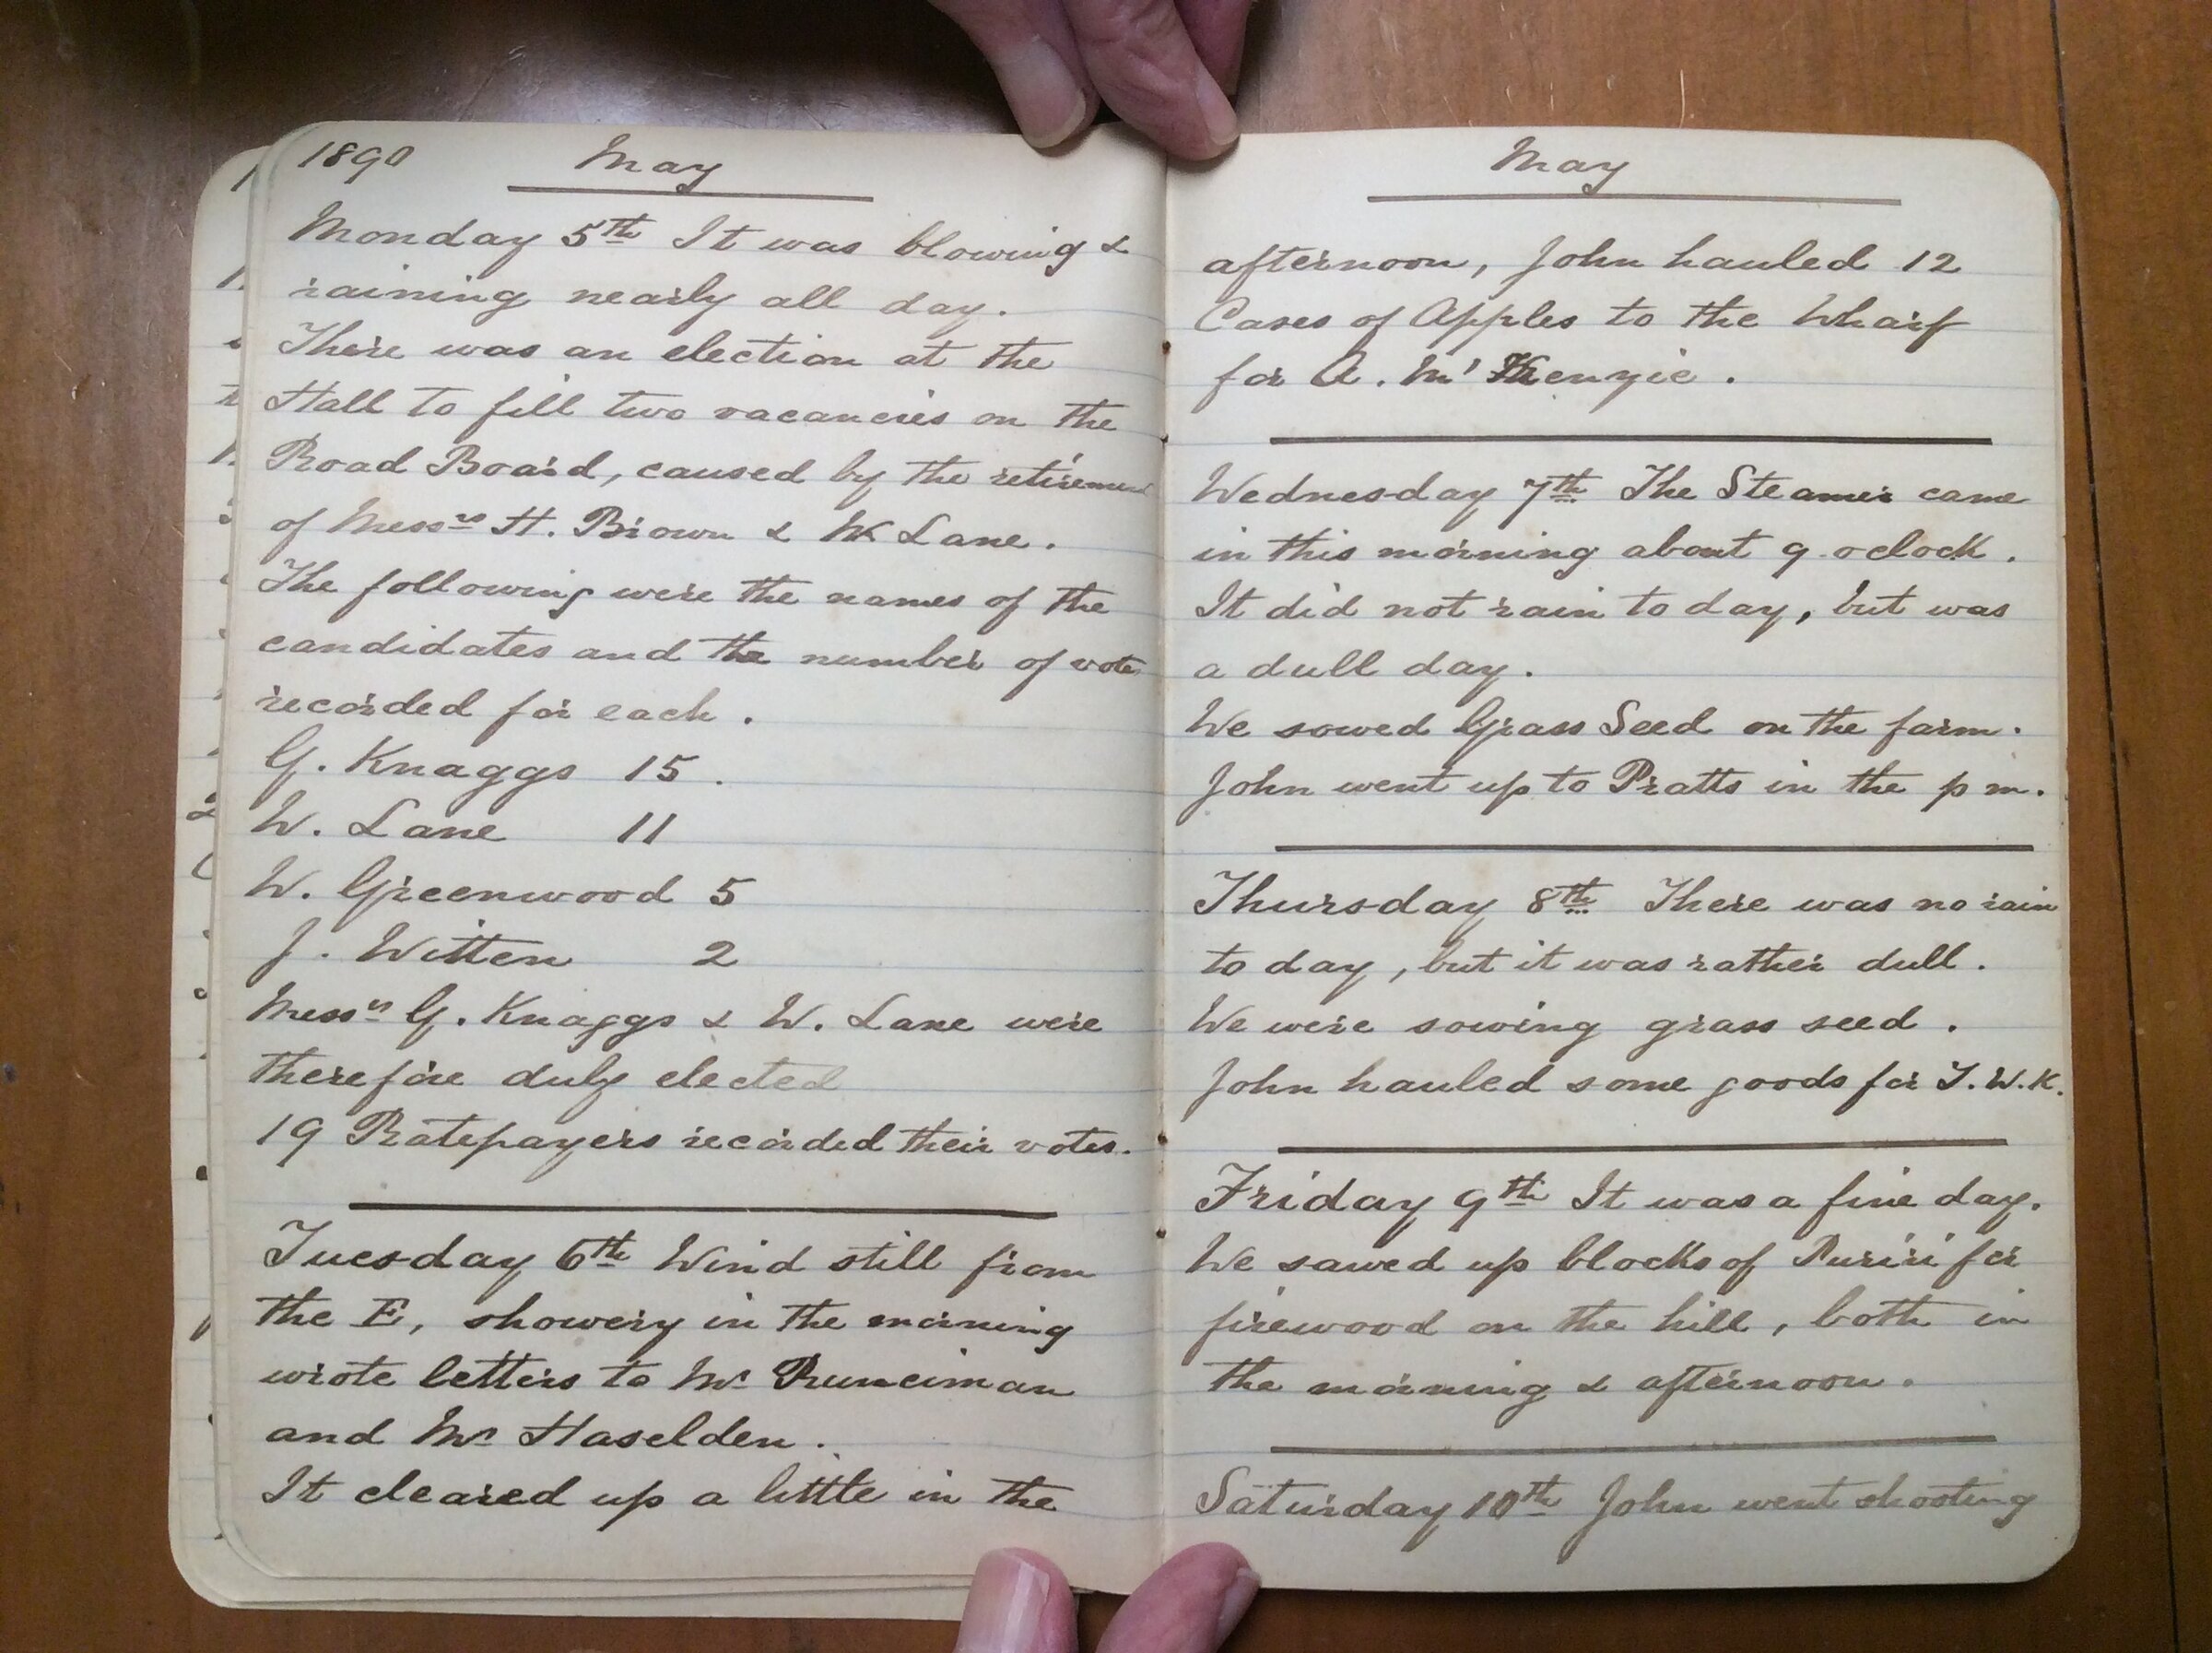 1890 May
Monday 5th It was blowing &
raining nearly all day.
There was an election at the
Hall to fill two vacancies on the
Road Board, caused by the retirement
of Messrs H. Brown & W Lane.
The following were the names of the
candidates and the number of vote
recorded for each.
G. Knaggs 15.
W. Lane 11
W. Greenwood 5
J. Witten 2
Messrs G. Knaggs & W. Lane were
therefore duly elected
19 Ratepayers recorded their votes.
Tuesday 6th Wind still from
the E, showery in the morning
wrote letters to Mr Runciman
and Mr Haselden.
It cleared up a little in the
May
afternoon, John hauled 12
Cases of Apples to the Wharf
for A. M'Kenzie.
Wednesday 7th The Steamer came
in this morning about 9 oclock.
It did not rain to day, but was
a dull day.
We sowed Grass Seed on the farm.
John went up to Pratts in the p m.
Thursday 8th There was no rain
to day, but it was rather dull.
We were sowing grass seed.
John hauled some goods for T.W.K.
Friday 9th It was a fine day.
We sawed up blocks of Puriri for
firewood on the hill, both in
the morning & afternoon.
Saturday 10th John went shooting